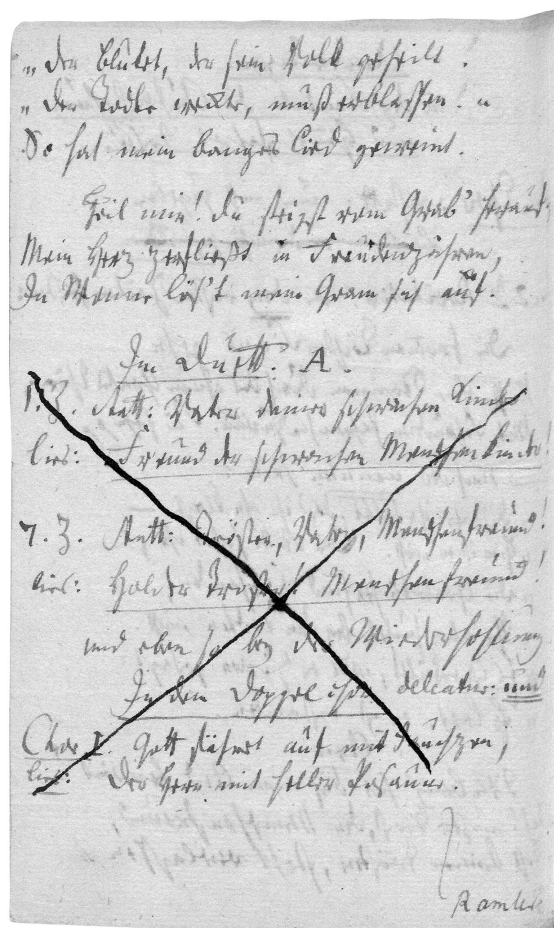 „ Der blutet, der sein Volk geheilt.
„ Der Todte weckte, muß erblassen. “
So hat mein banges Lied geweint.
Heil mir! du steigst vom Grab' heraus.
Mein Herz zerfließt in Freudenzähren,
In Wonne lös't mein Gram sich auf.
Im Duett: A.
1. Z. statt: Vater deiner schwachen Kinder
lies: Freund der schwachen Menschenkinder!
7. Z. statt: Tröster, Vater, Menschenfreund!
lies: Holder Tröster! Menschenfreund!
und eben so bey der Wiederhohlung
In dem Doppelchor deleatur: und
Chor I. Gott fähret auf mit Jauchzen,
lies: Der Herr mit heller Posaune.
Ramler